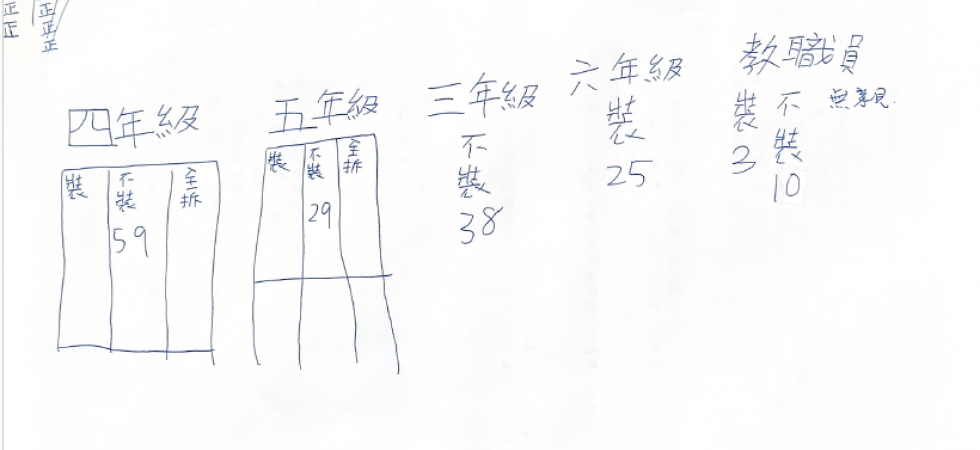 正 正
正 正
正
四年級
裝 不裝 全拆
59
五年級
裝 不裝 全拆
29
三年級
不裝
38
六年級
裝
25
教職員
裝 不裝 無意見
3 10